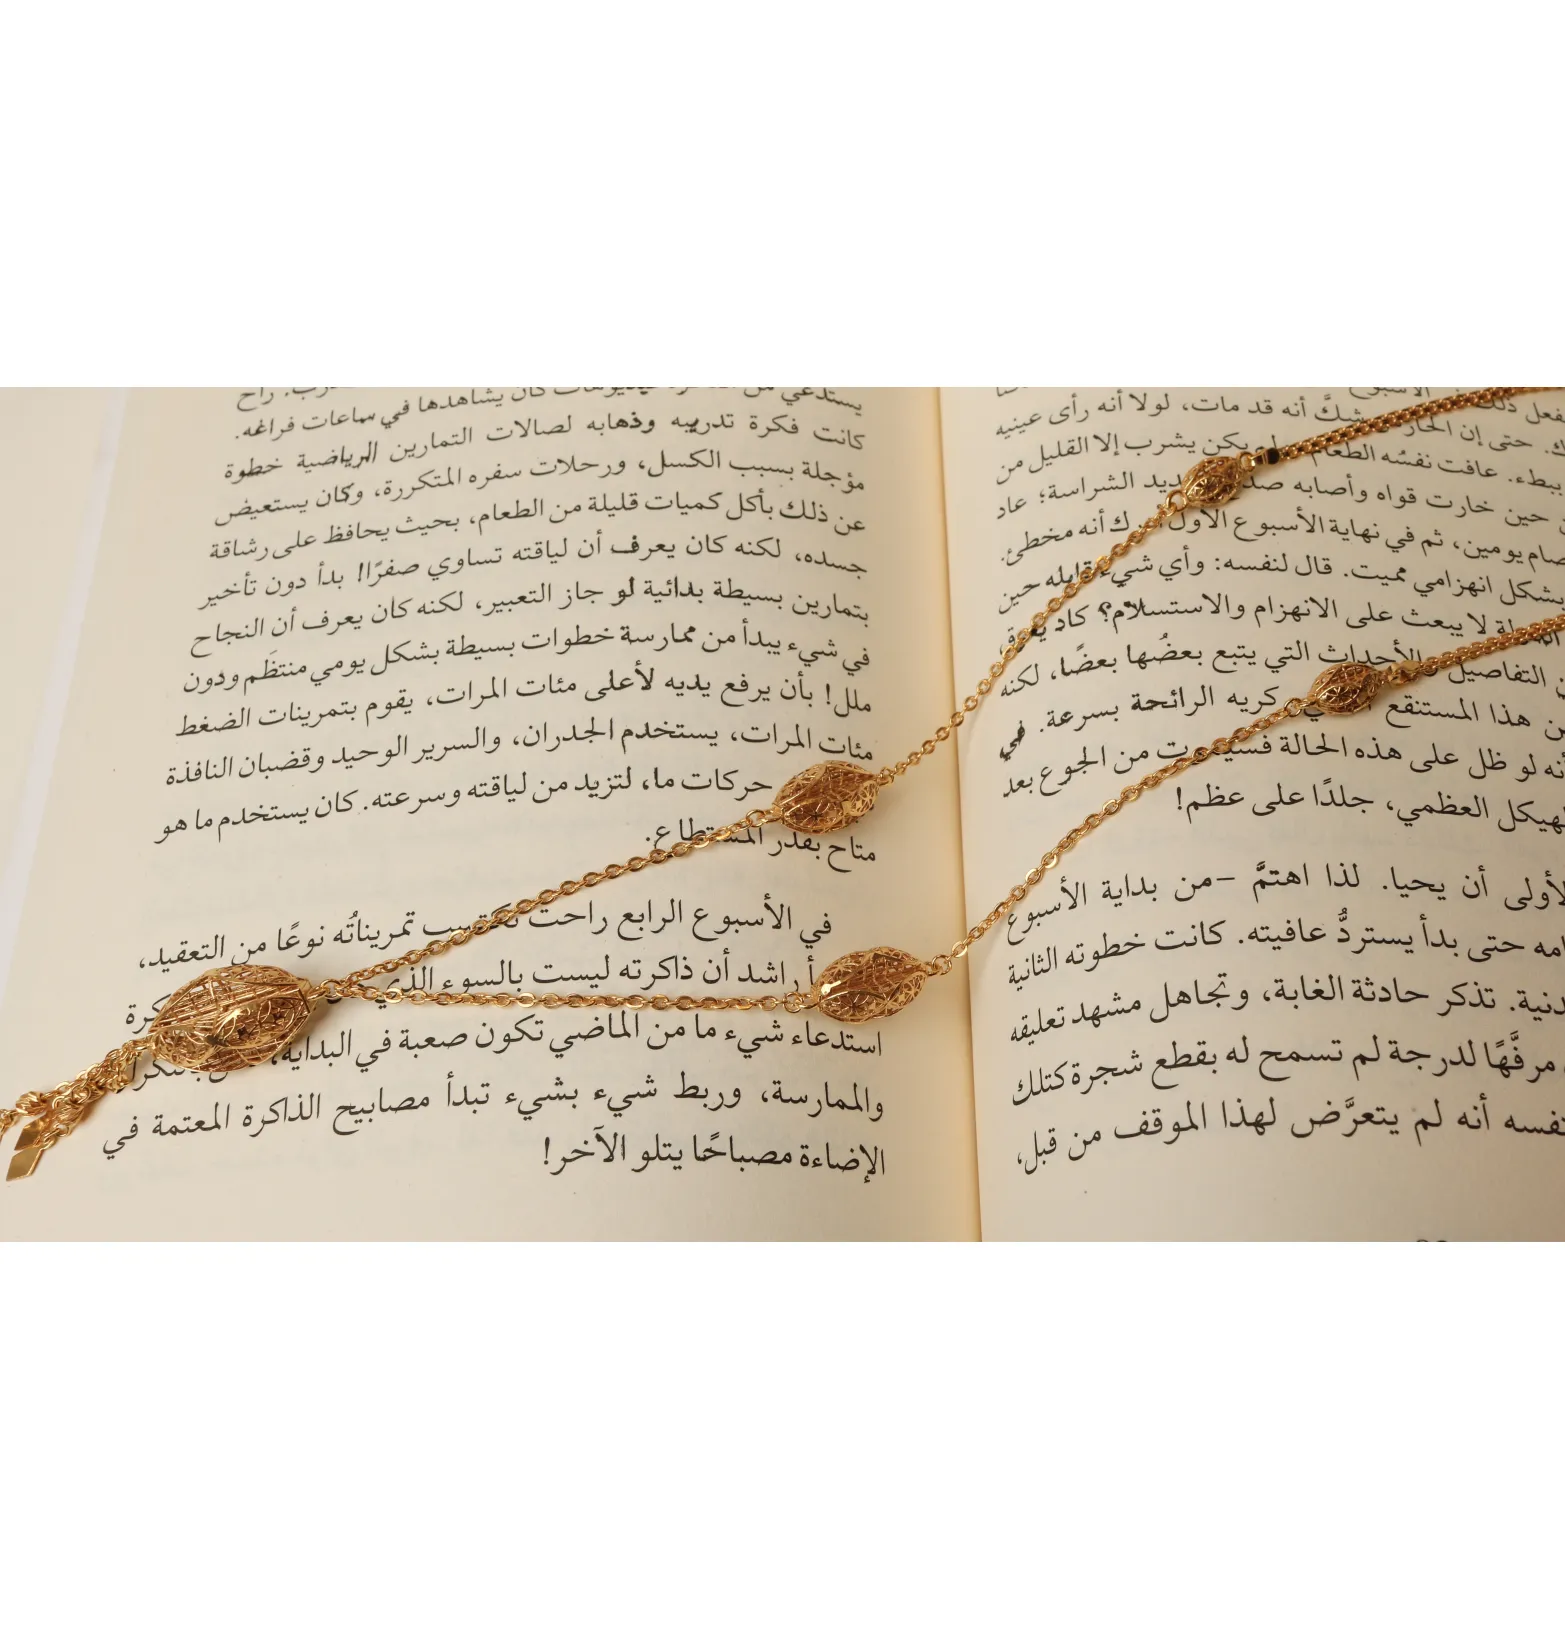 بفعل ذلك
شكَّ أنه قد مات، لولا أنه رأى عينيه
ببطء. عافت نفسُه الطعام يكن يشرب إلا القليل من
حين خارت قواه وأصابه الشراسة؛ عاد
صام يومين، ثم في نهاية الأسبوع الأول أنه مخطئ.
بشكل انهزامي مميت. قال لنفسه: وأي شيء قابله حين
لا يبعث على الانهزام والاستسلام؟ كاد
التفاصيل والأحداث التي يتبع بعضُها بعضًا، لكنه
من هذا المستنقع كريه الرائحة بسرعة. في
أنه لو ظل على هذه الحالة فسيموت من الجوع بعد
الهيكل العظمي، جلدًا على عظم!
الأولى أن يحيا. لذا اهتمَّ -من بداية الأسبوع
حتى بدأ يستردُّ عافيته. كانت خطوته الثانية
تذكر حادثة الغابة، وتجاهل مشهد تعليقه
مرفَّهًا لدرجة لم تسمح له بقطع شجرة كتلك
نفسه أنه لم يتعرَّض لهذا الموقف من قبل،
يستدعي من كان يشاهدها في ساعات فراغه. راح
كانت فكرة تدريبه وذهابه لصالات التمارين الرياضية خطوة
مؤجلة بسبب الكسل، ورحلات سفره المتكررة، وكان يستعيض
عن ذلك بأكل كميات قليلة من الطعام، بحيث يحافظ على رشاقة
جسده، لكنه كان يعرف أن لياقته تساوي صفرًا! بدأ دون تأخير
بتمارين بسيطة بدائية لو جاز التعبير، لكنه كان يعرف أن النجاح
في شيء يبدأ من ممارسة خطوات بسيطة بشكل يومي منتظَم ودون
ملل! بأن يرفع يديه لأعلى مئات المرات، يقوم بتمرينات الضغط
مئات المرات، يستخدم الجدران، والسرير الوحيد وقضبان النافذة
حركات ما، لتزيد من لياقته وسرعته. كان يستخدم ما هو
متاح بقدر المستطاع.
في الأسبوع الرابع راحت تكتسب تمريناتُه نوعًا من التعقيد،
راشد أن ذاكرته ليست بالسوء الذي
استدعاء شيء ما من الماضي تكون صعبة في البداية،
والممارسة، وربط شيء بشيء تبدأ مصابيح الذاكرة المعتمة في
الإضاءة مصباحًا يتلو الآخر!